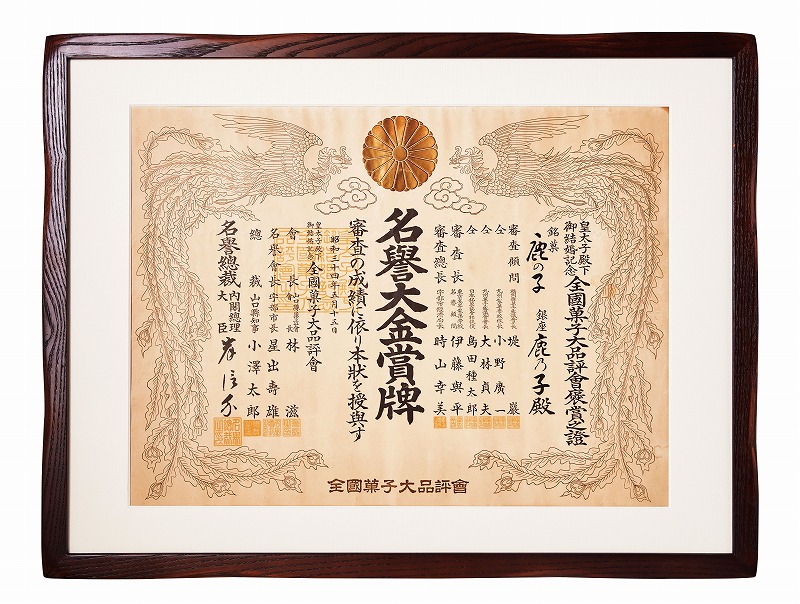 皇太子殿下
御結婚記念
全國菓子大品評會褒賞之證
銘菓
鹿の子
銀座
鹿乃子殿
審査顧問
堤巖
仝
小野廣一
仝
大林貞夫
仝
島田種太郎
審査長
伊藤與平
審査總長
時山幸美
名譽大金賞牌
審査の成績に依り本狀を授與す
昭和三十四年五月十五日
皇太子殿下
御結婚記念
全國菓子大品評會
會長
林滋
名譽會長
宇部市長
星出壽雄
總裁
山口縣知事
小澤太郎
名譽總裁
内閣總理
大臣
岸信介
全國菓子大品評會